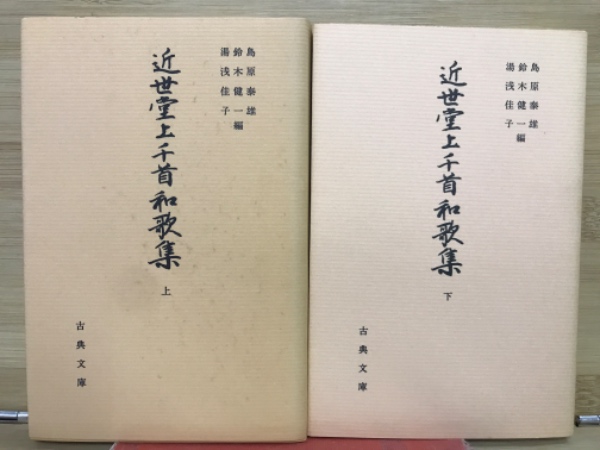 島原泰雄
鈴木健一編
湯浅佳子
近世堂上千首和歌集
上
古典文庫
島原泰雄
鈴木健一編
湯浅佳子
近世堂上千首和歌集
下
古典文庫